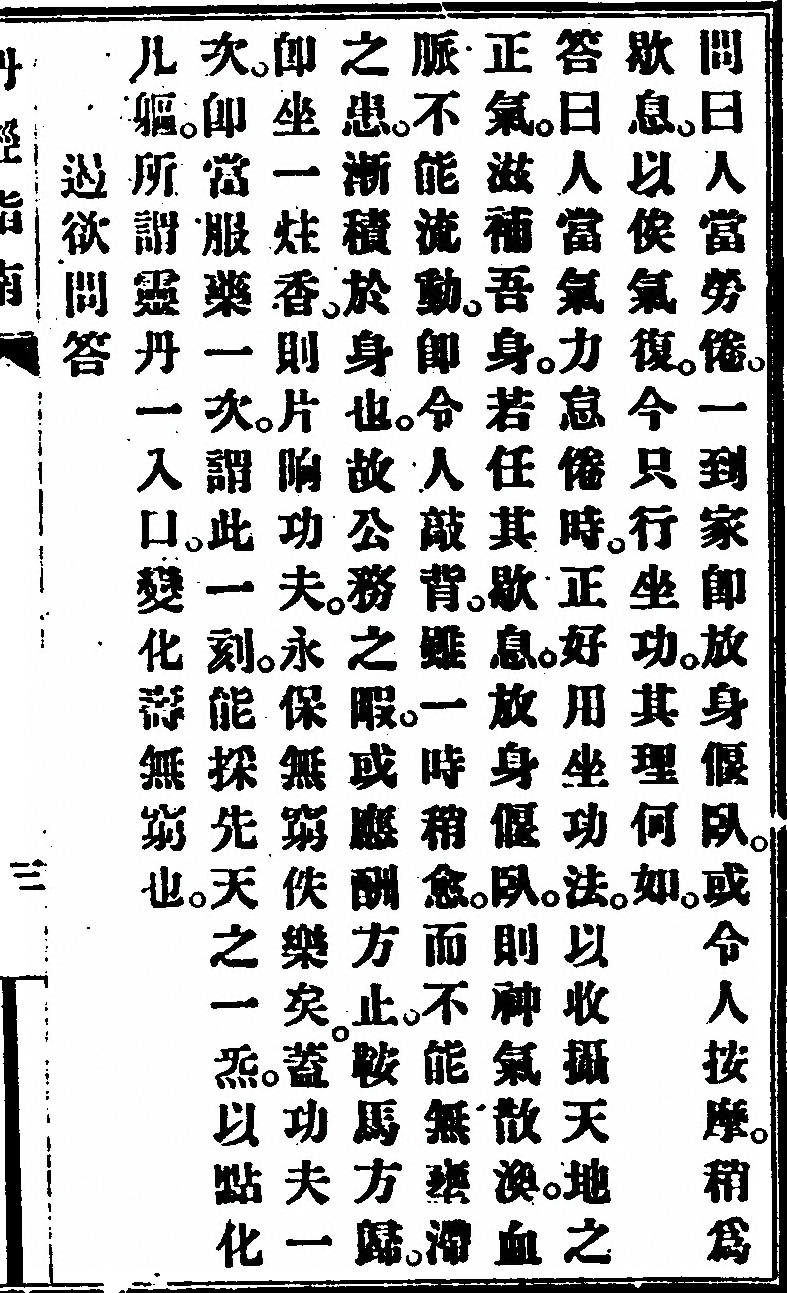 問曰人當勞倦。一到家卽放身偃臥。或令人按摩。稍爲
歇息。以俟氣復。今只行坐功。其理何如。
答曰人當氣力怠倦時。正好用坐功法。以收攝天地之
正氣。滋補吾身。若任其歇息。放身偃臥。則神氣散渙。血
脈不能流動。卽令人敲背。雖一時稍愈。而不能無壅滯
之患。漸積於身也。故公務之暇。或應酬方止。鞍馬方歸。
卽坐一炷香。則片晌功夫。永保無窮佚樂矣。蓋功夫一
次。卽當服藥一次。謂此一刻。能採先天之一炁。以點化
凡軀。所謂靈丹一入口。變化壽無窮也。
遏欲問答
丹經指南
三